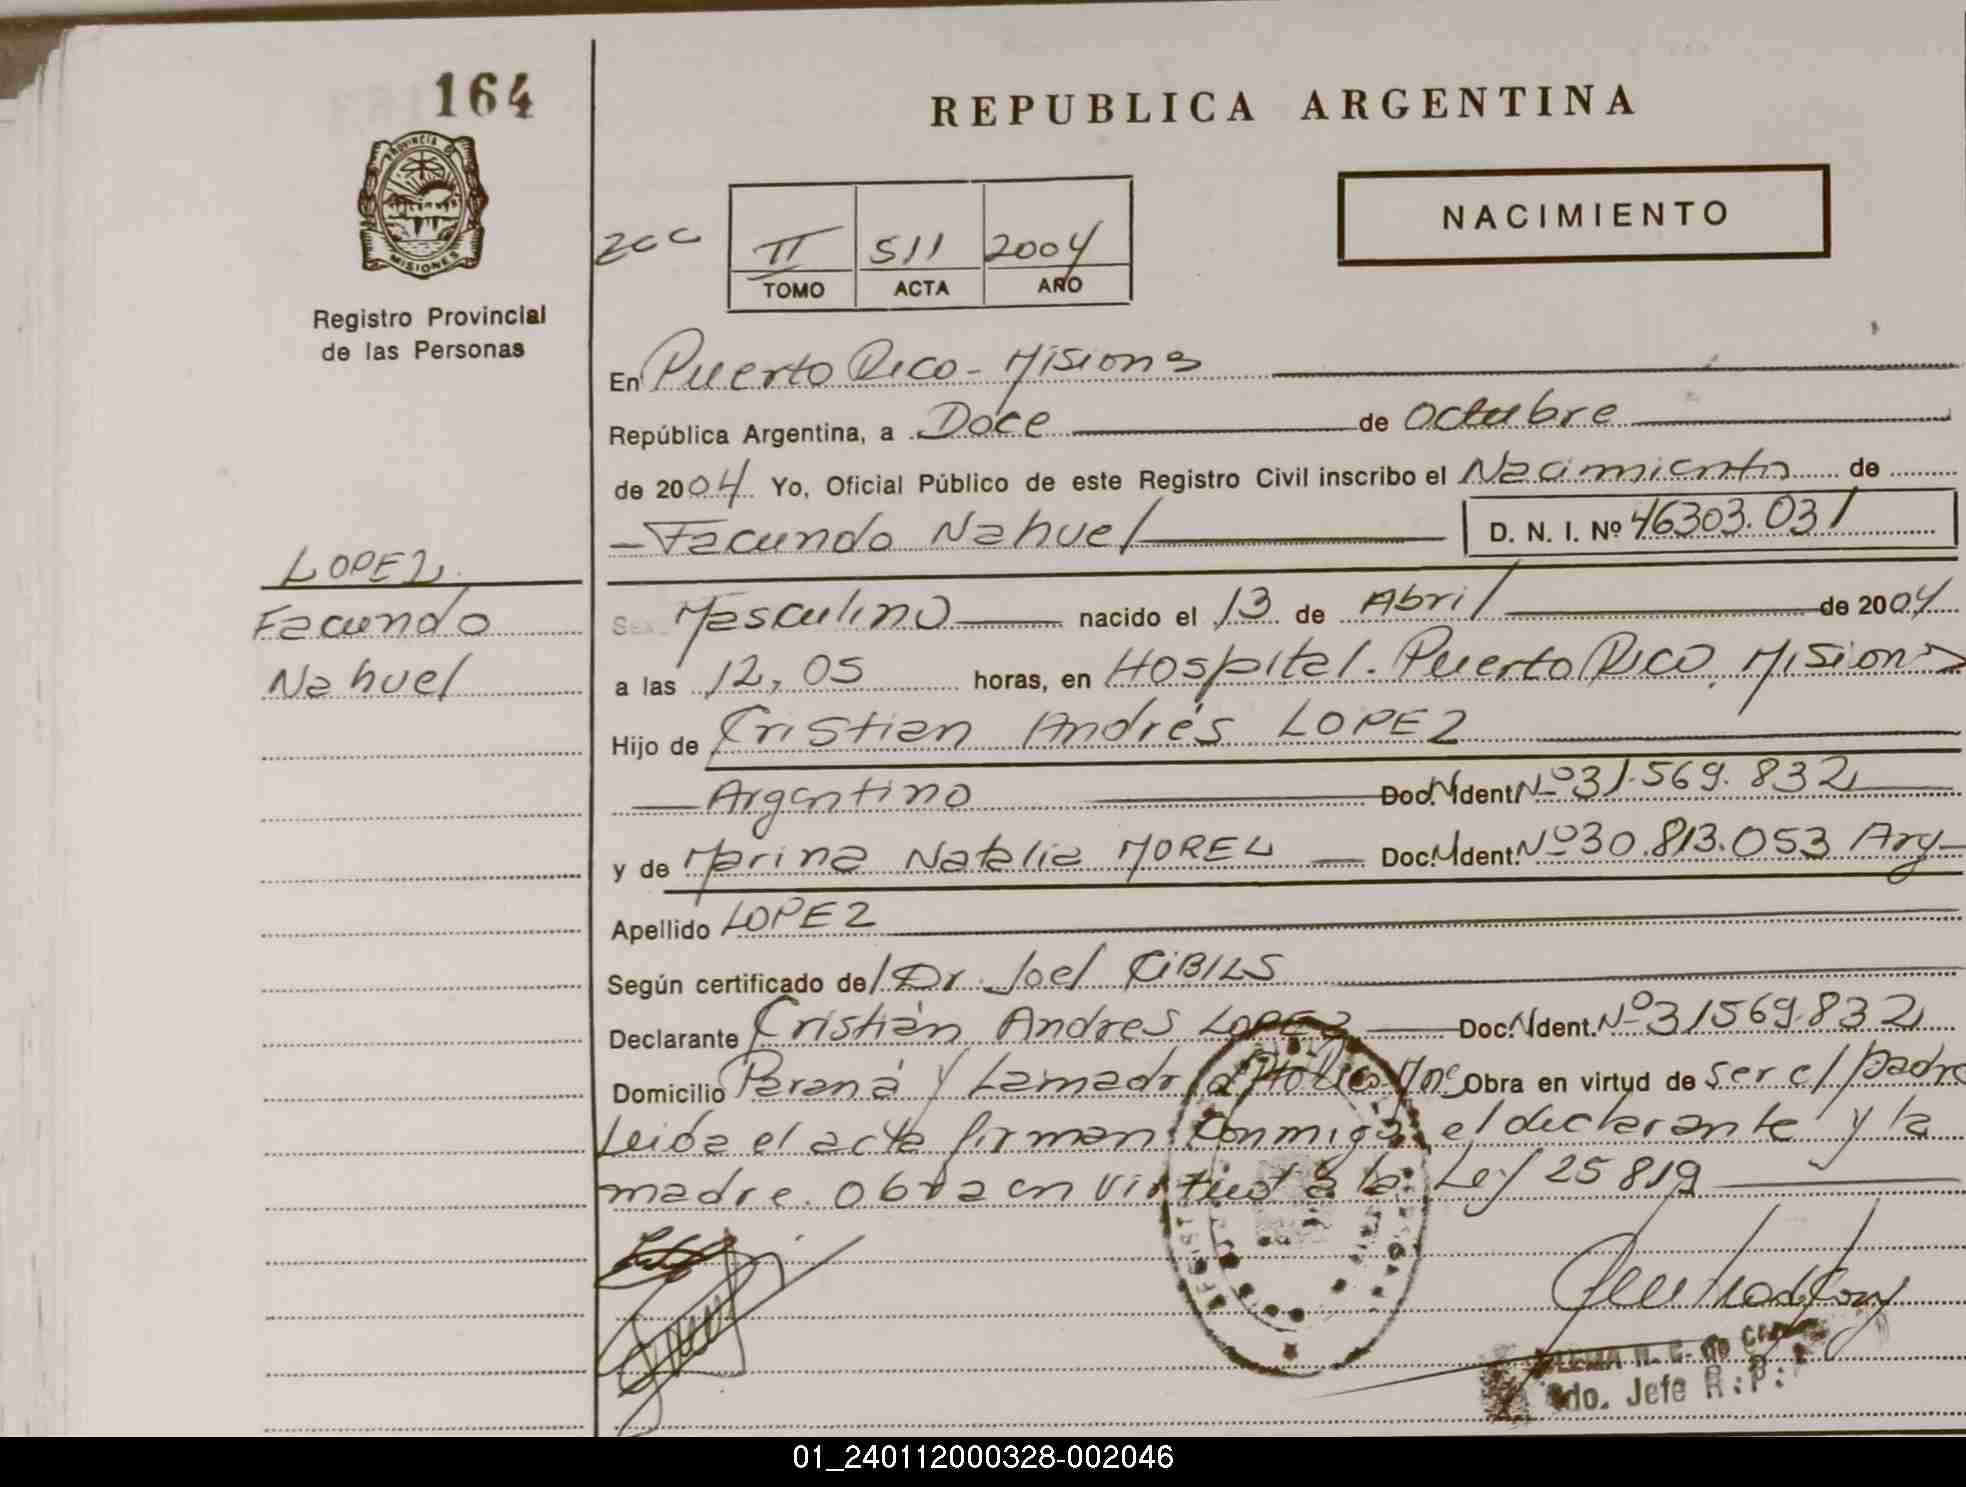 164
REPUBLICA ARGENTINA
PROVINCIA DE
MISIONES
Registro Provincial
de las Personas
NACIMIENTO
II 511 2004
TOMO ACTA AÑO
En Puerto Rico - Misiones
República Argentina, a Doce de Octubre
de 2004 Yo, Oficial Público de este Registro Civil inscribo el Nacimiento de
Facundo Nahuel D. N. I. Nº 46303.031
LOPEZ
Facundo
Nahuel
Sexo Masculino nacido el 13 de Abril de 2004
a las 12,05 horas, en Hospital. Puerto Rico, Misiones
Hijo de Cristian Andrés LOPEZ
Argentino Doc. Ident. Nº 31.569.832
y de Marina Natalia MOREL Doc. Ident. Nº 30.813.053 Arg
Apellido LOPEZ
Según certificado de l Dr. Joel CIBILS
Declarante Cristián Andres LOPEZ Doc. Ident. Nº 31569.832
Domicilio Paraná y Lamadrid Obra en virtud de ser el padre
Leida el acta firman conmigo el declarante y la
madre. Obra en virtud a la Ley 25819
Jefe R. P.
01_240112000328-002046